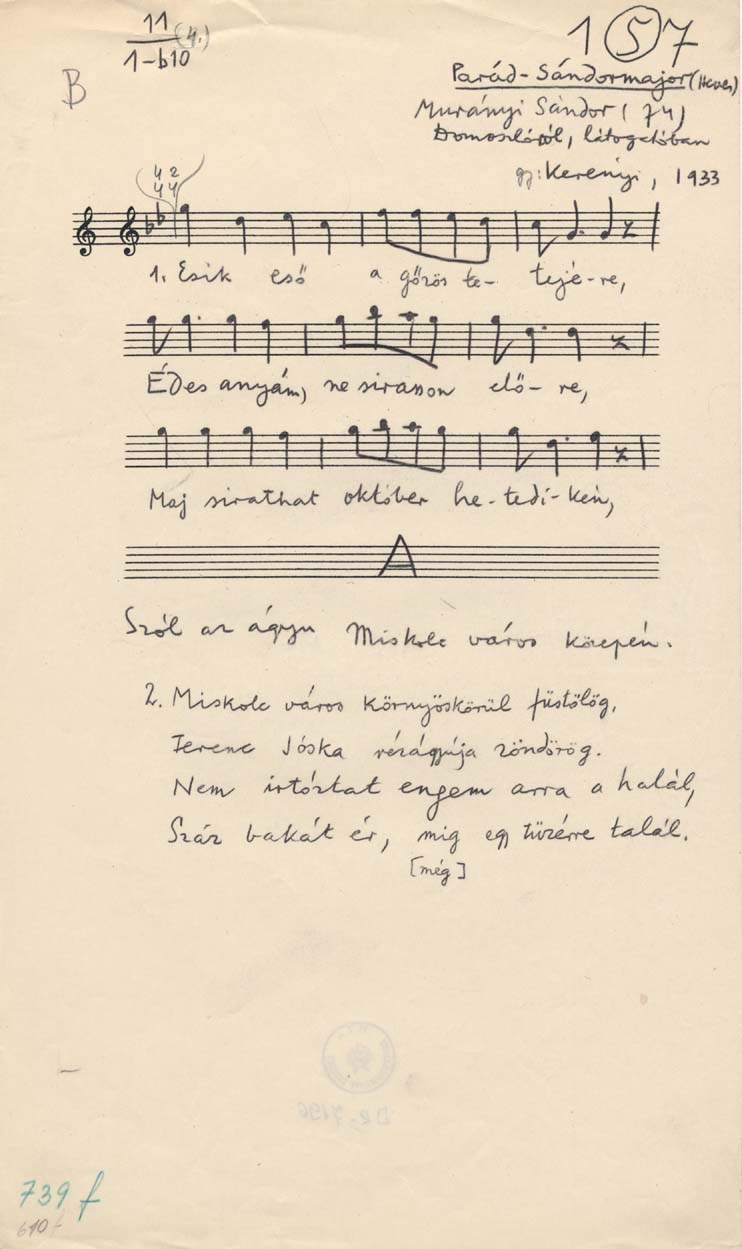 11 (4.)
1-b10
B
1 5 7
Parád-Sándormajor (Heves)
Murányi Sándor (74)
Domoszlóról, látogatóban
gy: Kerényi, 1933
4 2
4 4
1. Esik eső a gőzös te- tejé-re,
Édes anyám, ne sirasson elő- re,
Maj sirathat október he-tedi-kén,
A
Szól az ágyu Miskolc város közepén.
2. Miskolc város környöskörül füstölög,
Ferenc Jóska rézágyúja zöndörög.
Nem irtóztat engem arra a halál,
Száz bakát ér, mig egy tüzérre talál.
[még]
739 f
610 f